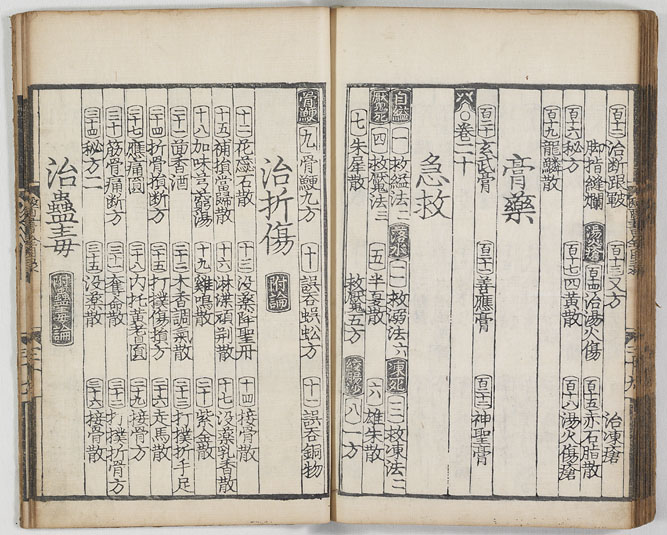 百十二 治断跟皸 百十三 又方 治凍瘡
脚指縫爛 湯火瘡 百十四 治湯火傷 百十五 赤石脂散
百十六 秘方 百十七 四黄散 百十八 湯火傷瘡
百十九 龍麟散
膏藥
玄武膏 善應膏 神聖膏
〇卷二十
急救
自縊 一 救縊法二 落水 二 救溺法六 凍死 三 救凍法二
魘死 四 救魘法三 五 半夏散 六 雄朱散
七 朱犀散 救魘五方 八 一方
骨鯁 九 骨鯁九方 十 誤吞蜈蚣方 十一 誤吞銅物
治折傷 附論
十二 花蘂石散 十三 没藥降聖丹 十四 接骨散
十五 補損當歸散 十六 淋渫頑荊散 十七 没藥乳香散
十八 加味芎藭湯 十九 雞鳴散 二十 紫金散
二十一 茴香酒 二十二 木香調氣散 二十三 打撲折手足
二十四 折骨損斷方 二十五 打撲傷損方 二十六 走馬散
二十七 應痛圓 二十八 内托黄耆圓 二十九 接骨方
三十 筋骨痛斷方 三十一 奪命散 打撲折骨方
三十四 秘方二 三十五 没藥散 三十六 接骨散
治蠱毒 附蠱毒論